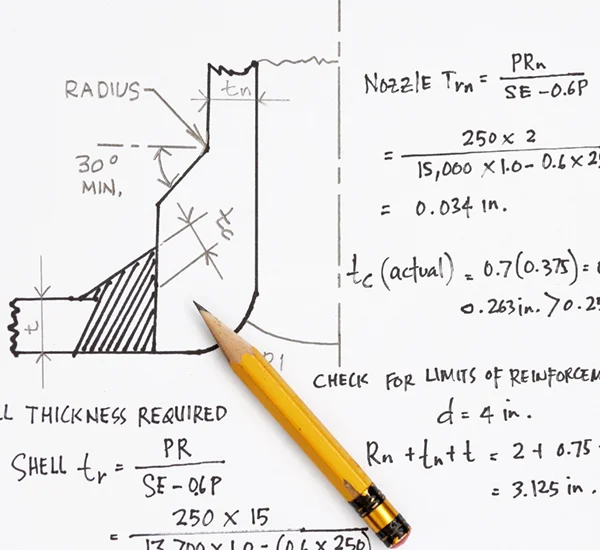 RADIUS
tn
30°
MIN.
t
NOZZLE Trn = PRn
SE - 0.6P
= 250 x 2
15,000 x 1.0 - 0.6 x 25
= 0.034 in.
tc (actual) = 0.7(0.375) =
0.263 in. > 0.25
CHECK FOR LIMITS OF REINFORCEM
d = 4 in.
Rn + tn + t = 2 + 0.75
= 3.125 in.
LL THICKNESS REQUIRED
SHELL tr = PR
SE - 0.6P
= 250 x 15
13,700 x 1.0 - (0.6 x 250)